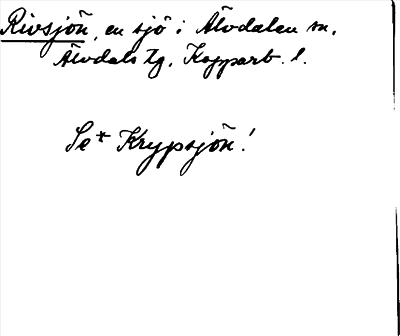 Rivsjön, en sjö i Älvdalen sn,
Älvdals tg, Kopparb. l.
Se* Krypsjön!